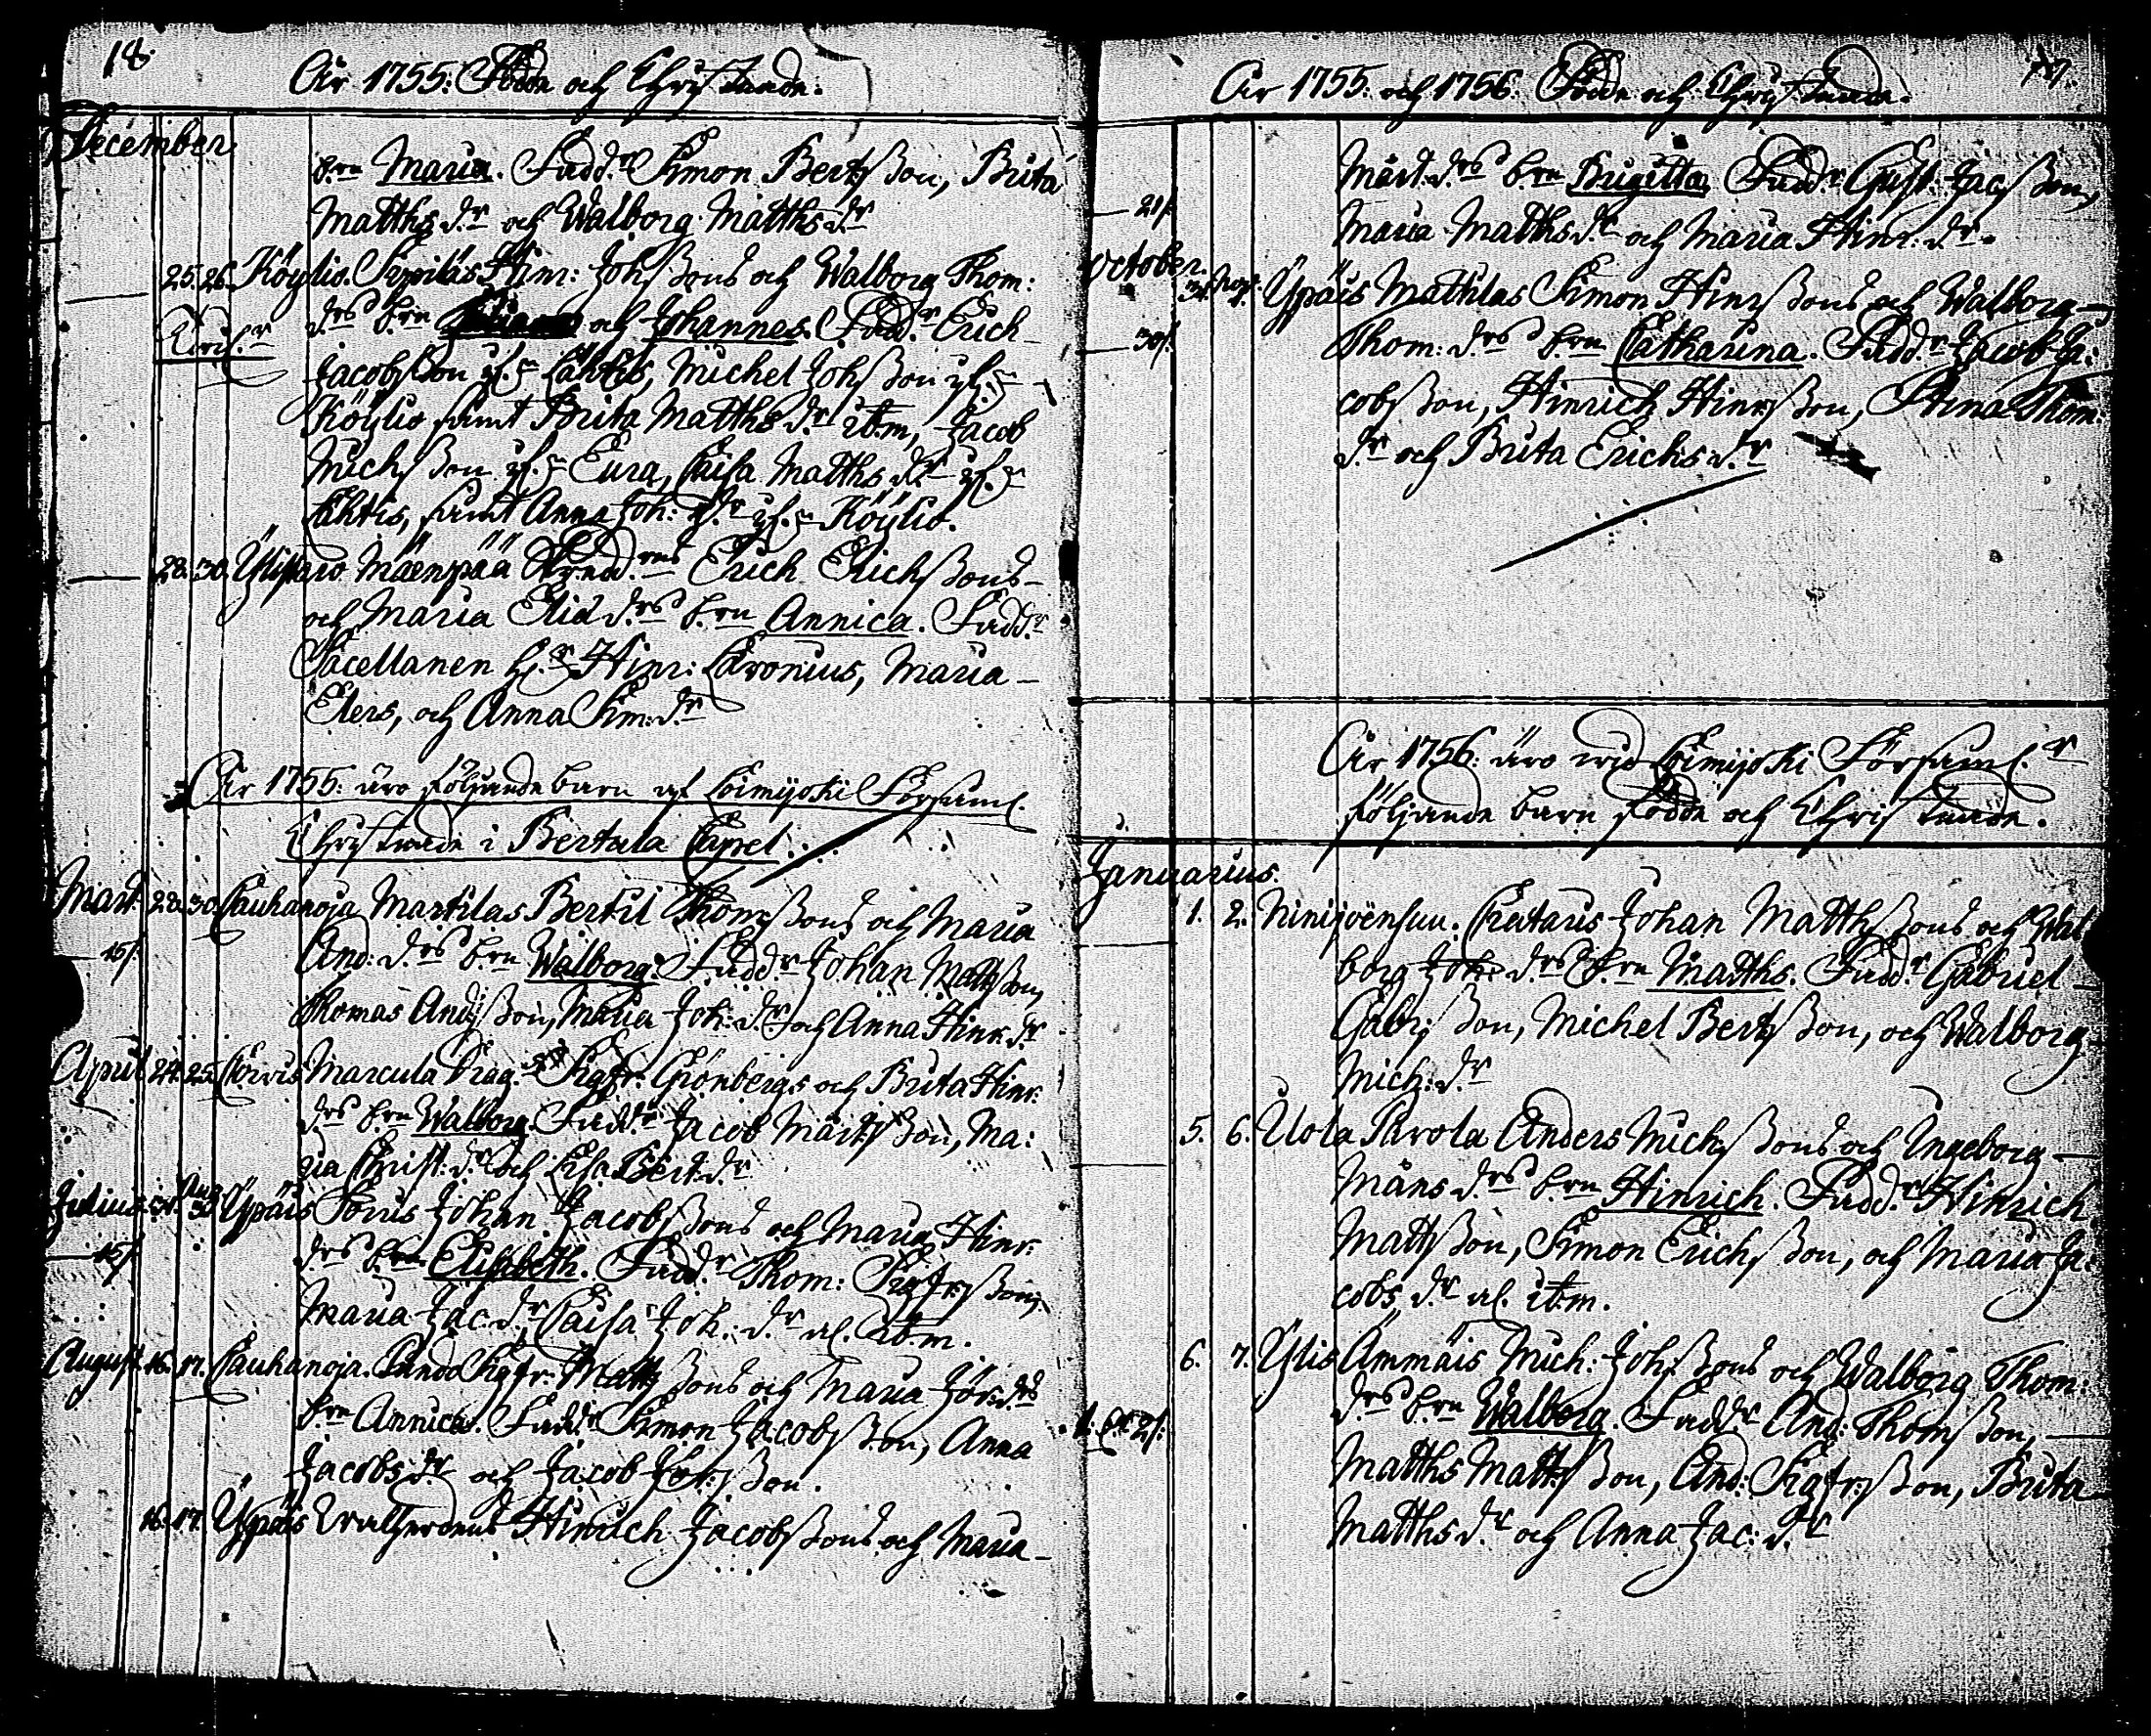 18.
Åhr 1755: Födde och Christnade.
December
b:rn Maria. Fadd:r Simon Bertsson, Brita
Matths d:r och Walborg Matths d:r
25. 26. Köylio. Seppiläs Hinr: Johssons och Walborg Thom:
d:rs b:rn och Johannes. Fadd:r Erich
Jacobsson if:r Lähtis, Michel Johsson if:r
Köylio samt Brita Matths d:r ib:m, Jacob
Michsson if:r Eura, Caisa Matths d:r if:r
Lähtis, samt Anna Joh: d:r if:r Köylio.
28. 30. Ylistaro Mäenpää Erich Erichssons
och Maria Elia d:rs b:rn Annica. Fadd:r
Sacellanen H:r Hinr: Maria
Elers, och Anna Sim: d:r
Åhr 1755: äro följande barn af Loimijoki Församl.
Christnade i Bertula Capel.
Mart. 28. 30. Cauhanoja Martilas Bertil Thomssons och Maria
And: d:rs b:rn Walborg. Fadd:r Johan Mattsson,
Thomas Andsson, Maria Joh: d:r och Anna Hinr: d:r
April 24. 25. Marcula Drag: Sigfr: Grönbergs och Brita Hinr:
d:rs b:rn Walborg. Fadd:r Jacob Märtsson, Ma:
ria Christ: d:r och Lisa Bert: d:r
Julius Ypäis Johan Jacobssons och Maria Hinr:
d:rs b:rn Elisabeth. Fadd:r Thom: Sigfrsson,
Maria Jac: d:r, Caisa Joh: d:r al. ib:m.
August. 16. 17. Cauhanoja. Sigfr: Mattssons och Maria Jör: d:rs
b:rn Annica. Fadd:r Simon Jacobsson, Anna
Jacobs d:r och Jacob
16. 17. Ypäis Hinrich Jacobssons och Maria
Åhr 1755: och 1756. Födde och Christnade.
Märt: d:rs b:rn Brigitta, Fadd:r Gust: Jacsson,
Maria Matths d:r och Maria Hinr: d:r.
October.
31. Nov. 1. Ypäis Mathlas Simon Hinrssons och Walborg
Thom: d:rs b:rn Catharina. Fadd:r Jacob Ja:
cobsson, Hinrich Hinrsson, Stina Thom:
d:r och Brita Erichs d:r
Åhr 1756: äro wid Loimijoki Församl:r
följande barn födde och Christnade.
Januarius.
1. 2. Ninijoënsuu. Johan Matthssons och Wal
borg Joh: d:rs b:rn Matths. Fadd:r Gabriel
Gabrsson, Michel Bertsson, och Walborg
Mich: d:r
5. 6. Uola Parola Anders Michssons och Ingeborg
Måns d:rs b:rn Hinrich. Fadd:r Hinrich
Mattsson, Simon Erichsson, och Maria Ja:
cobs d:r al. ib:m.
6. 7. Ylis Ämmäis Mich: Johssons och Walborg Thom:
d:rs b:rn Walborg. Fadd:r And: Thomsson,
Matths Mattsson, And: Sigfrsson, Brita
Matths d:r och Anna Jac: d:r